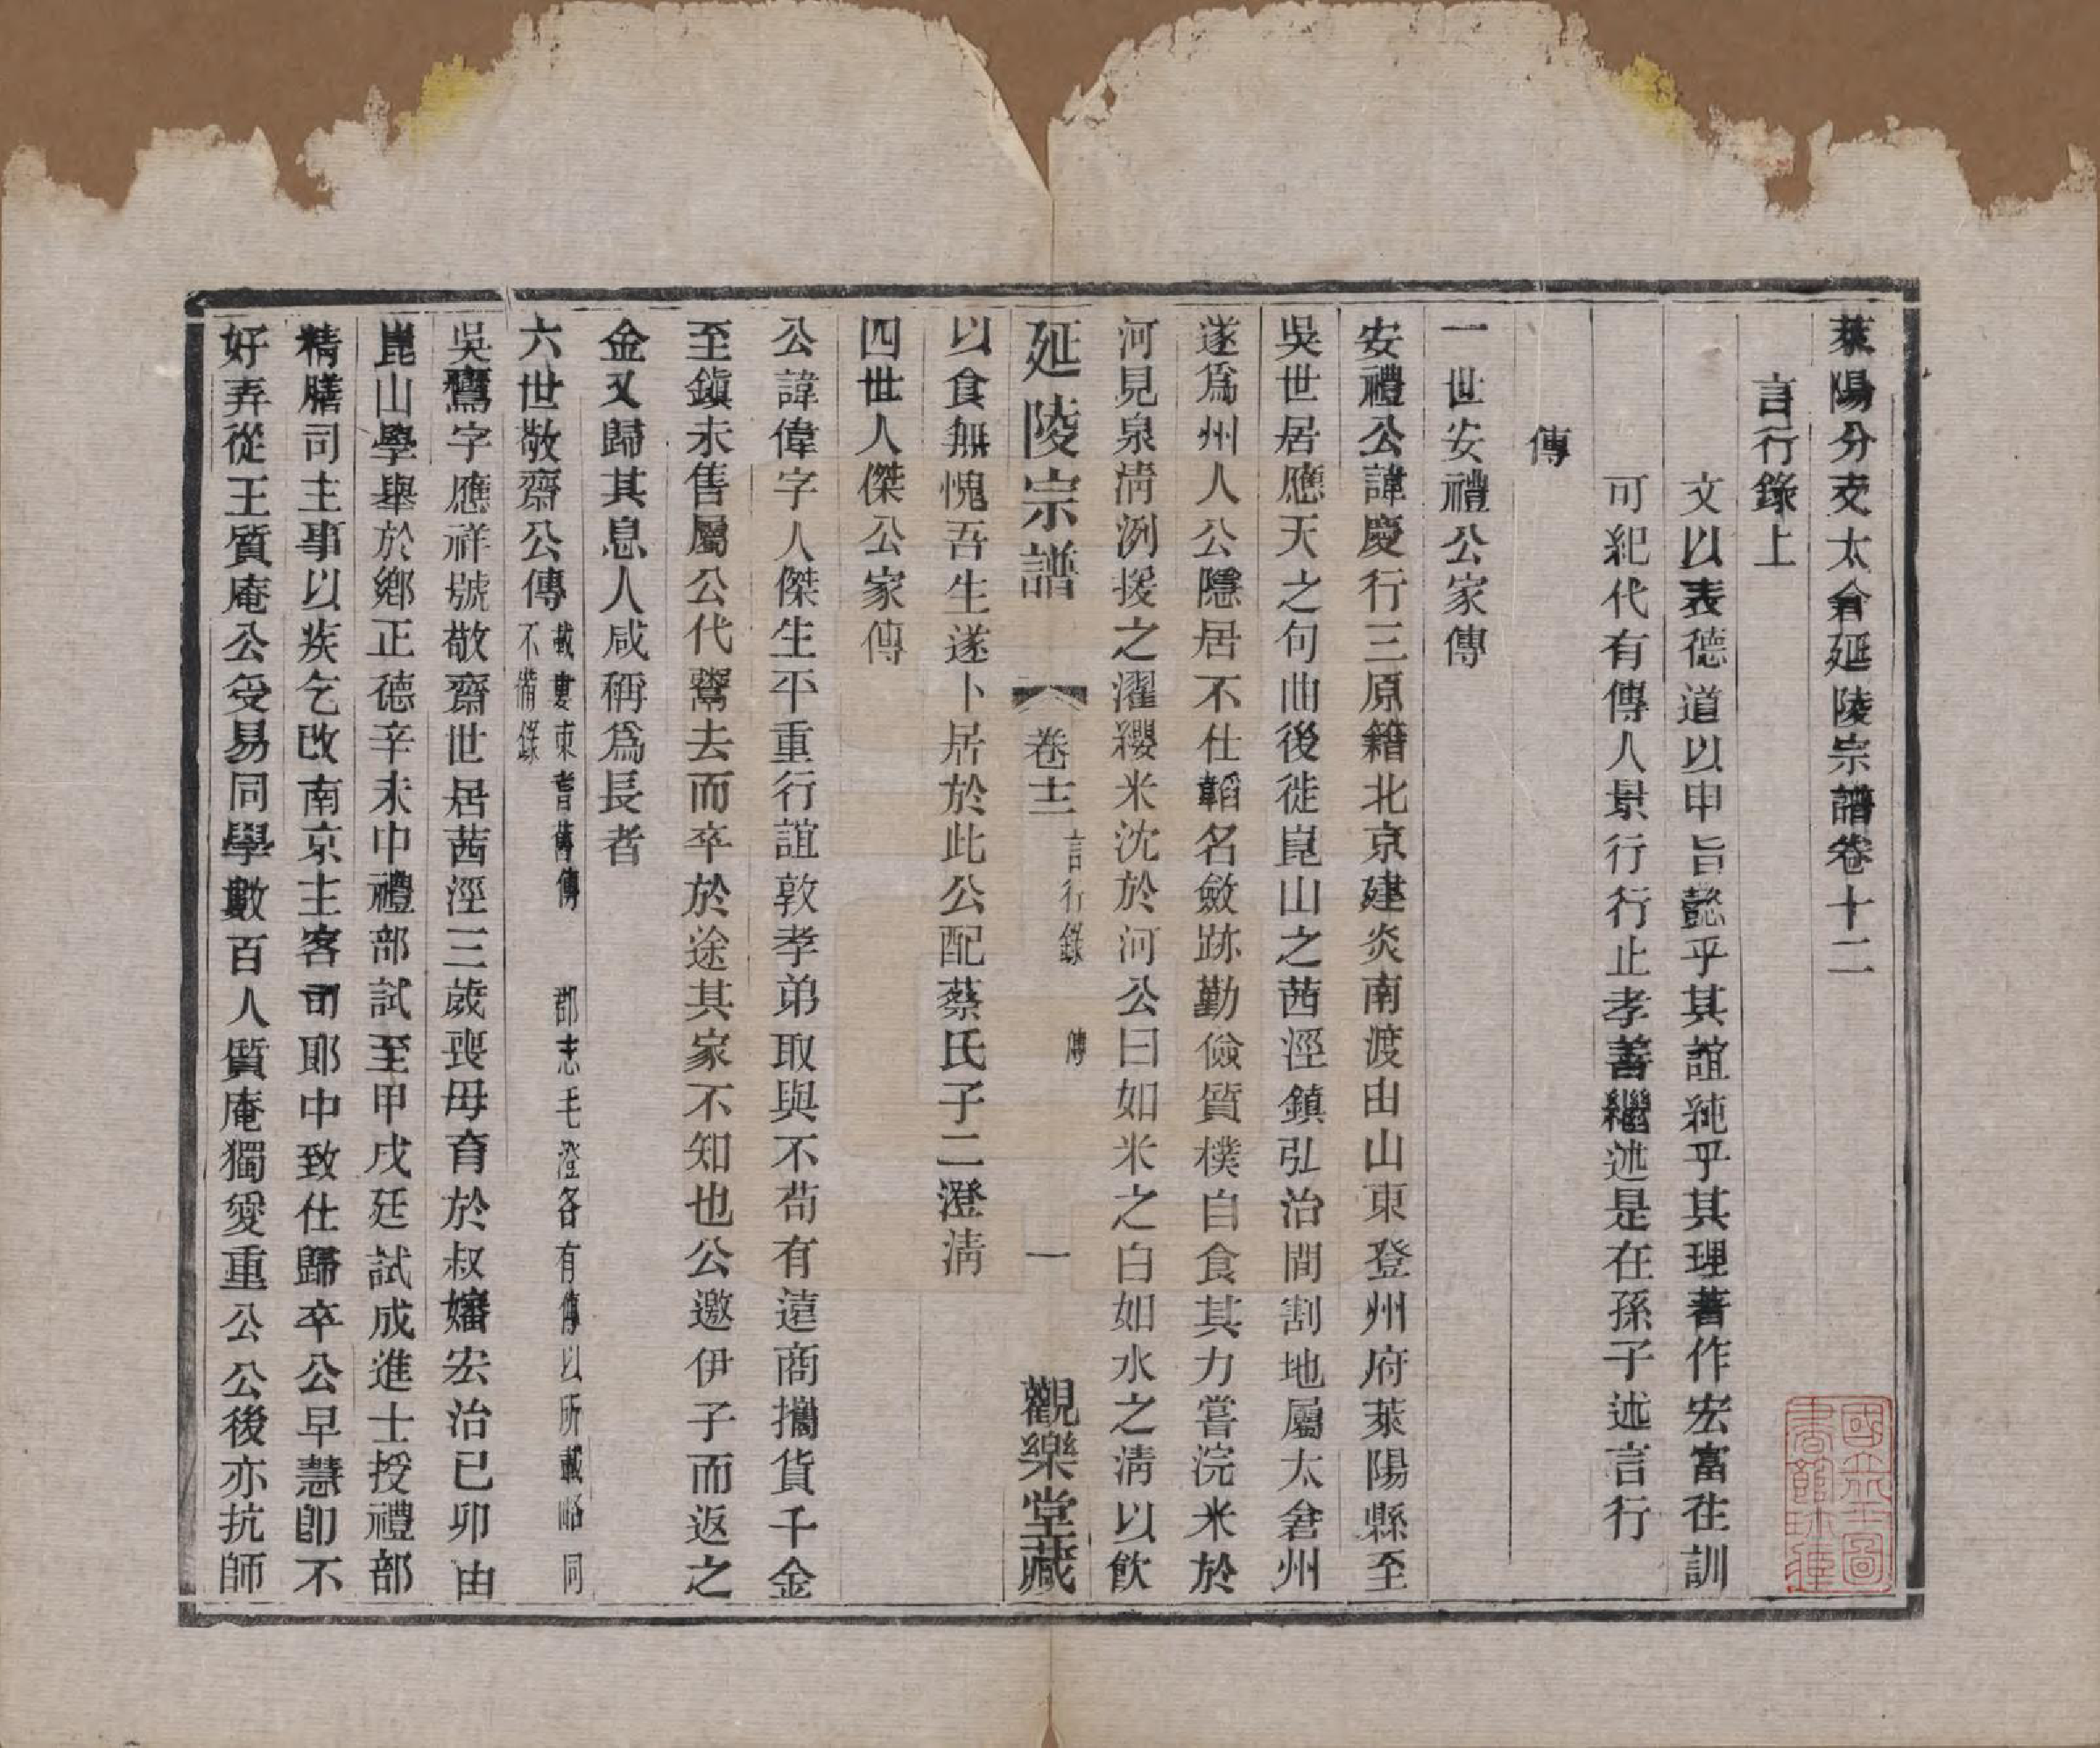 萊陽分支太倉延陵宗譜卷十二
言行錄上
文以表德道以申旨懿乎其誼純乎其理著作宏富在訓
可紀代有傳人景行行止孝善繼述是在孫子述言行
傳
一世安禮公家傳
安禮公諱慶行三原籍北京建炎南渡由山東登州府萊陽縣至
吳世居應天之句曲後徙崑山之茜涇鎮弘治間割地屬太倉州
遂爲州人公隱居不仕韜名斂跡勤儉質樸自食其力嘗浣米於
河見泉清洌援之濯纓米沈於河公曰如米之白如水之清以飲
延陵宗譜
卷十二
言行錄 傳
一
觀樂堂藏
以食無愧吾生遂卜居於此公配蔡氏子二澄淸
四世人傑公家傳
公諱偉字人傑生平重行誼敦孝弟取與不茍有遠商攜貨千金
至鎮未售屬公代鬻去而卒於途其家不知也公邀伊子而返之
金又歸其息人咸稱爲長者
六世敬齋公傳 載婁東耆舊傳 郡志毛澄各有傳以所載略同不備錄
吳鸞字應祥號敬齋世居茜涇三歲喪母育於叔嬸宏治己卯由
崑山學舉於鄉正德辛未中禮部試至甲戌廷試成進士授禮部
精膳司主事以疾乞改南京主客司郎中致仕歸卒公早慧卽不
好弄從王質庵公受易同學數百人質庵獨愛重公公後亦抗師